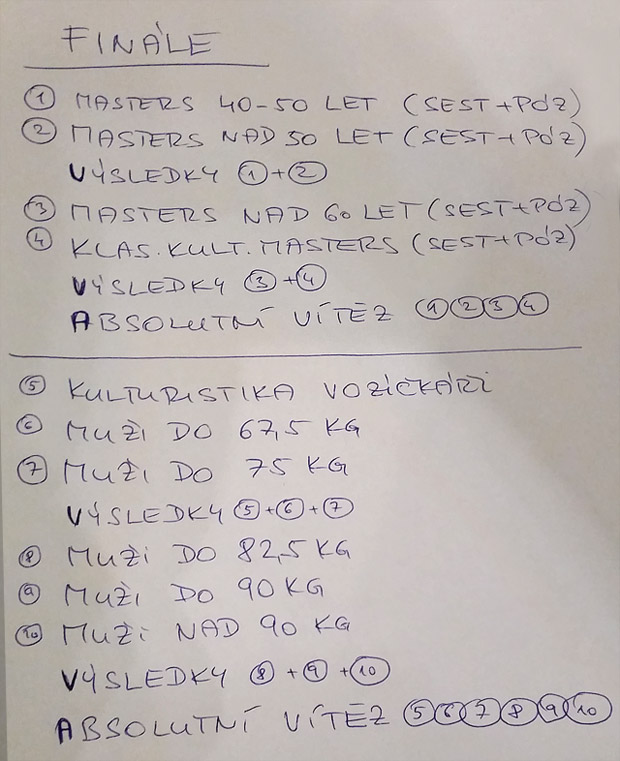 FINÁLE
① MASTERS 40-50 LET (SEST+PÓZ)
② MASTERS NAD 50 LET (SEST+PÓZ)
VÝSLEDKY ①+②
③ MASTERS NAD 60 LET (SEST+PÓZ)
④ KLAS. KULT. MASTERS (SEST+PÓZ)
VÝSLEDKY ③+④
ABSOLUTNÍ VÍTĚZ ①②③④
⑤ KULTURISTIKA VOZÍČKÁŘI
⑥ MUŽI DO 67,5 KG
⑦ MUŽI DO 75 KG
VÝSLEDKY ⑤+⑥+⑦
⑧ MUŽI DO 82,5 KG
⑨ MUŽI DO 90 KG
⑩ MUŽI NAD 90 KG
VÝSLEDKY ⑧+⑨+⑩
ABSOLUTNÍ VÍTĚZ ⑤⑥⑦⑧⑨⑩